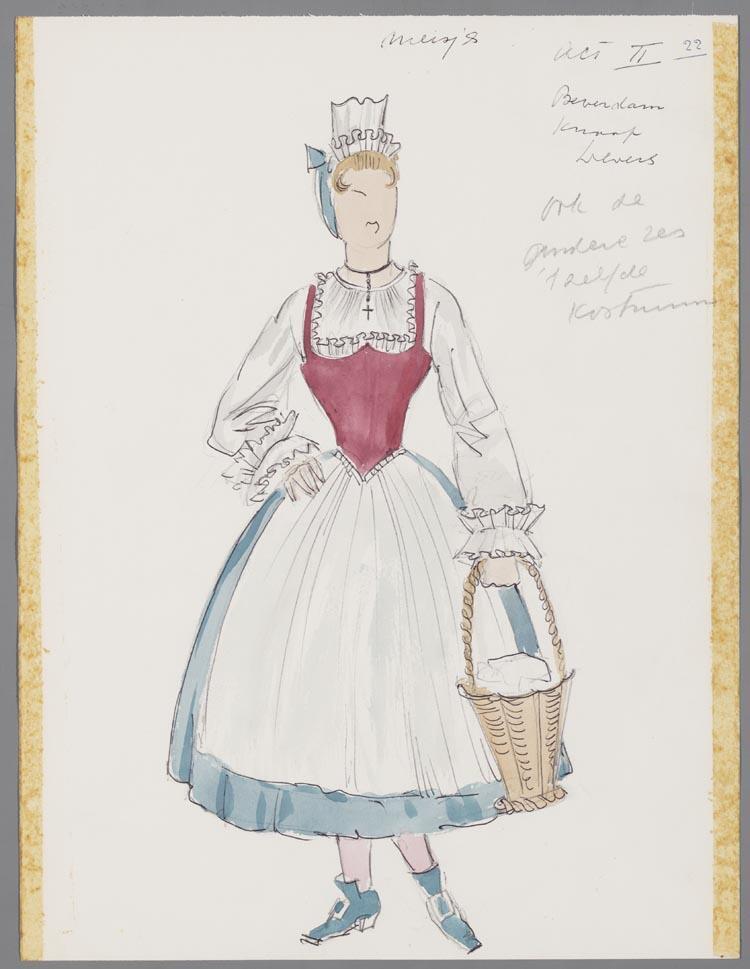 meisjes
Act II 22
Beverdam
Knaap
Wevers
ook de
andere zes
't zelfde
kostuum